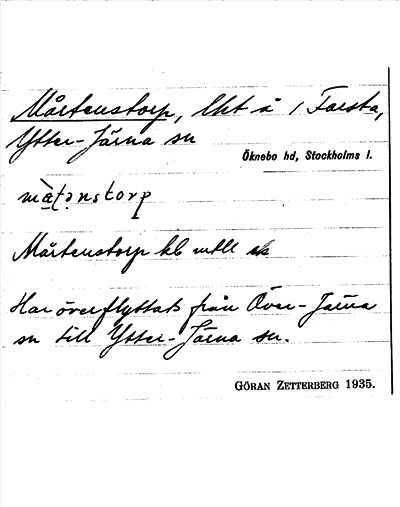 Mårtenstorp, lht å 1 Farsta,
Ytter-Järna sn
Öknebo hd, Stockholms l.
Mårtenstorp kb mtll
Har överflyttats från Över-Järna
sn till Ytter-Järna sn.
GÖRAN ZETTERBERG 1935.